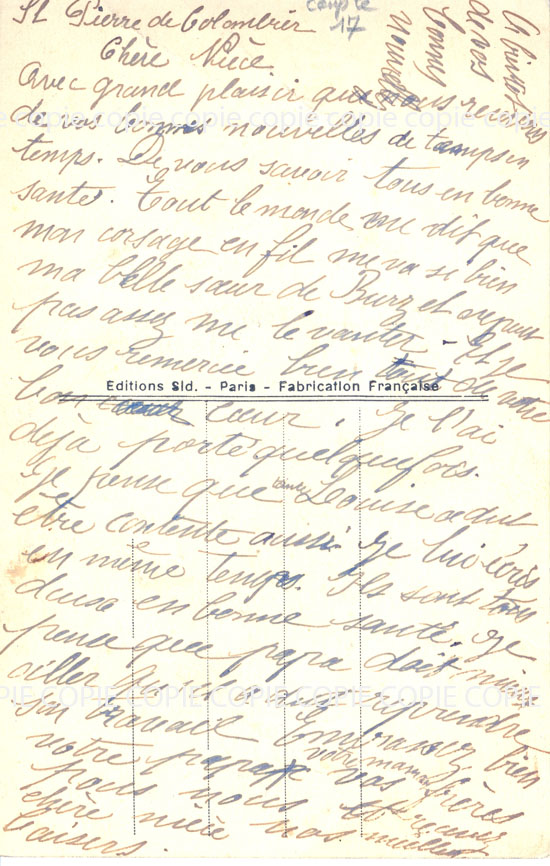 St Pierre de Colombier
compte
17
Chère Nièce
Avec grand plaisir que nous recevons
de vos bonnes nouvelles de temps en
temps. De vous savoir tous en bonne
santé. Tout le monde me dit que
mon corsage en fil me va si bien
ma belle sœur de Burzet ne peut
pas assez me le vanter. Et je
vous remercie bien tout de votre
Editions Sld. - Paris - Fabrication Française
bon cœur. Je l'ai
déjà porté quelquefois.
Je pense que tante Louise a dut
être contente aussi. Je lui écris
en même temps. Ils sont tous
deux en bonne santé. Je
pense que papa doit
son travail Embrassez bien
votre papa votre maman vos frères
pour nous
chère nièce nos meilleurs
baisers.
A bientôt
de vos
COPIE COPIE COPIE COPIE COPIE COPIE COPIE
COPIE COPIE COPIE COPIE COPIE COPIE COPIE